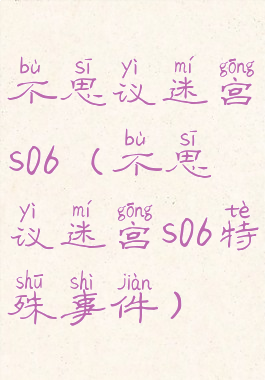 bù sī yì mí gōng
不思议迷宫
bù sī
s06（不思
yì mí gōng tè
议迷宫s06特
shū shì jiàn
殊事件）